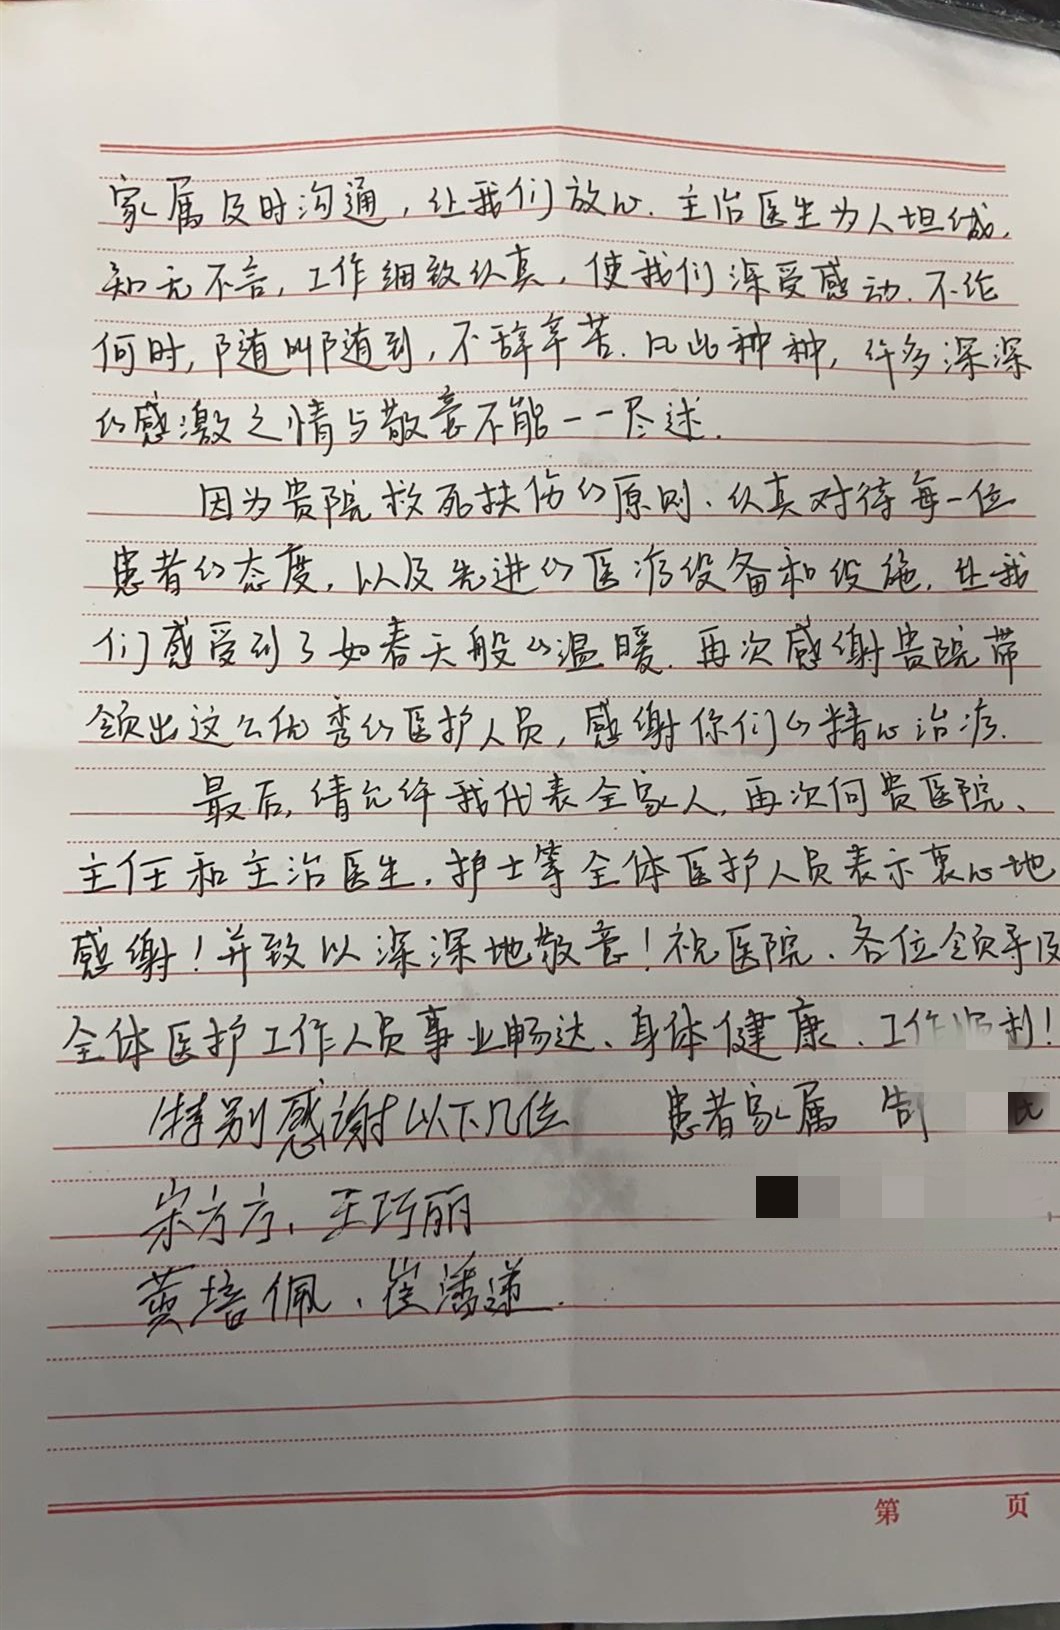 家属及时沟通,让我们放心.主治医生为人坦诚,
知无不言,工作细致认真,使我们深受感动.不论
何时,随叫随到,不辞辛苦.凡此种种,许多深深
的感激之情与敬意不能一一尽述.
因为贵院救死扶伤的原则、认真对待每一位
患者的态度,以及先进的医疗设备和设施,让我
们感受到了如春天般的温暖.再次感谢贵院带
领出这么优秀的医护人员,感谢你们的精心治疗.
最后,请允许我代表全家人,再次向贵医院、
主任和主治医生,护士等全体医护人员表示衷心地
感谢!并致以深深地敬意!祝医院、各位领导及
全体医护工作人员事业畅达、身体健康、工作顺利!
特别感谢以下几位 患者家属
宋方方、王巧丽
黄培佩、崔潘
第 页